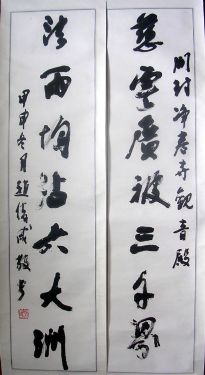 開封净意寺觀音殿
慈雲廣被三千界
法雨均沾六大洲
甲申冬月趙俊成敬書